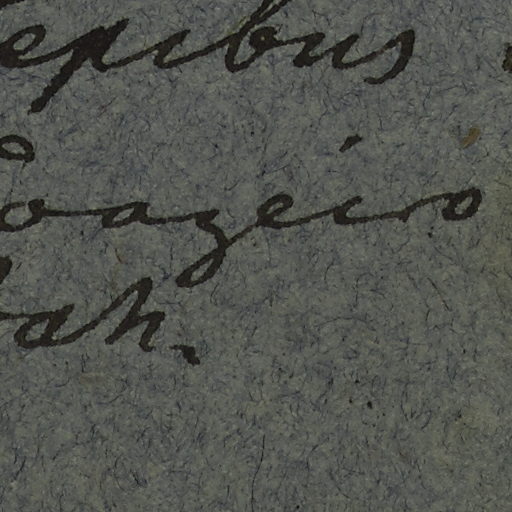 epibus
oazeiro
ah.